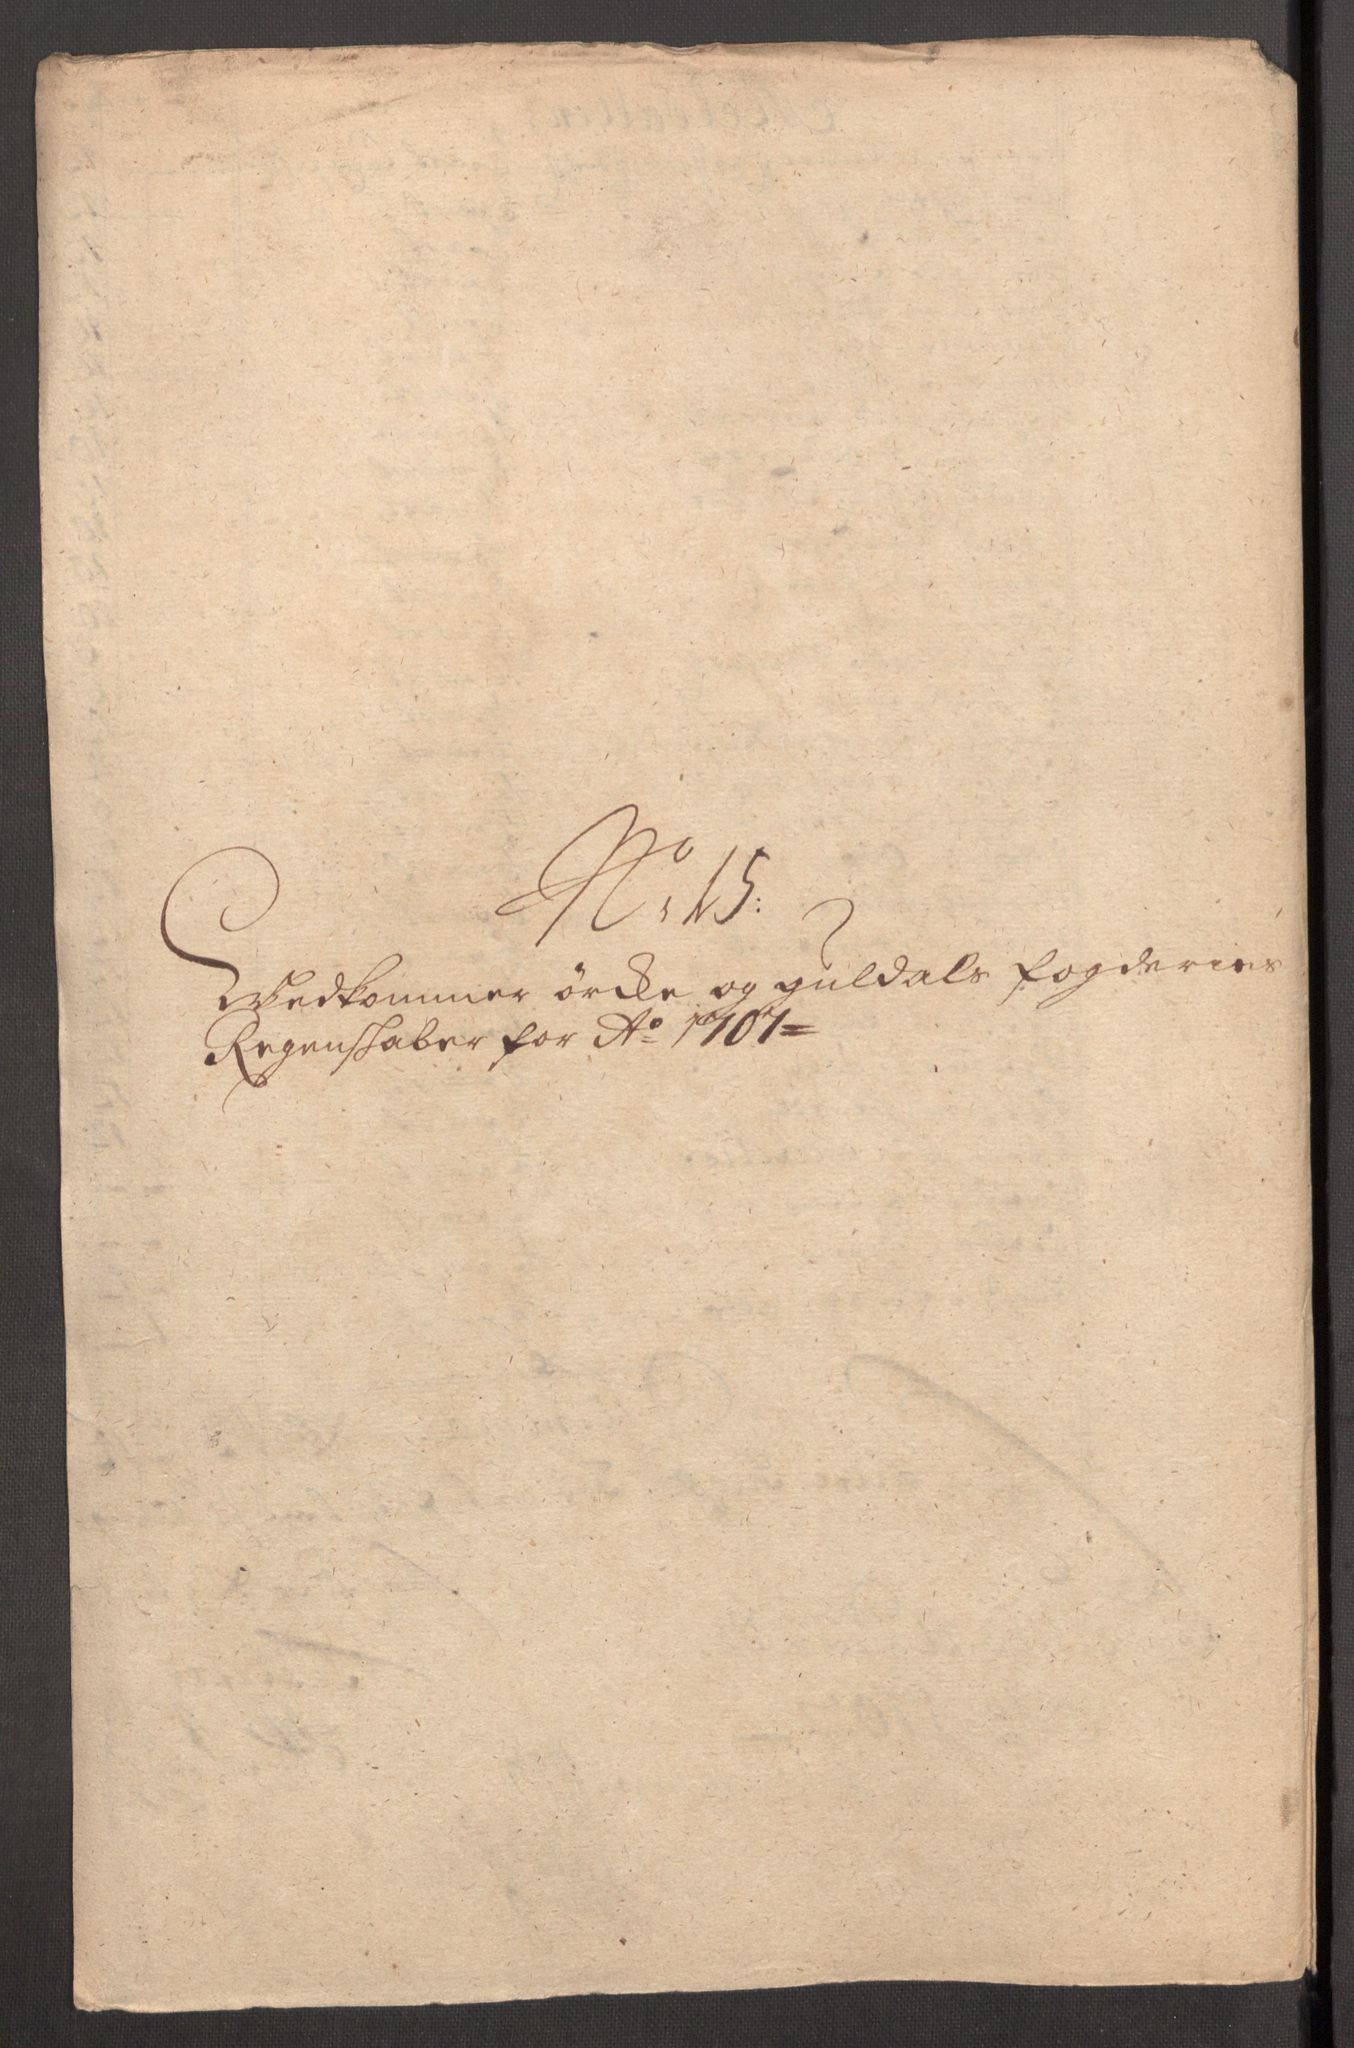 No 15:
Wedkommer örcke og guldals fogderies
Regenskaber for Ao 1707=